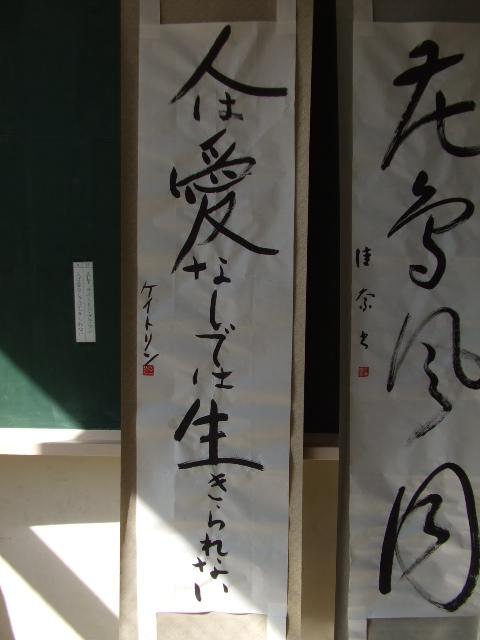 花鳥風月
佳奈書
人は愛なしでは生きられない
ケイトリン